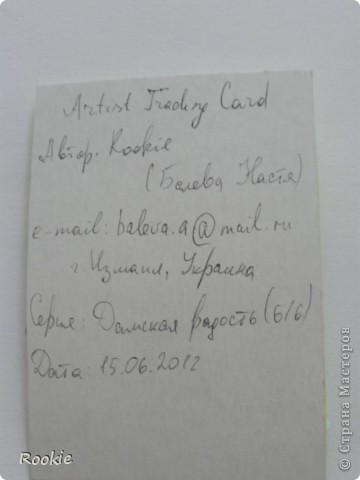 Artist Trading Card
Автор: Rookie
(Балева Настя)
e-mail: baleva.a@mail.ru
г. Измаил, Украина
Серия: Дамская радость (6/6)
Дата: 15.06.2012
Rookie
© Страна Мастеров